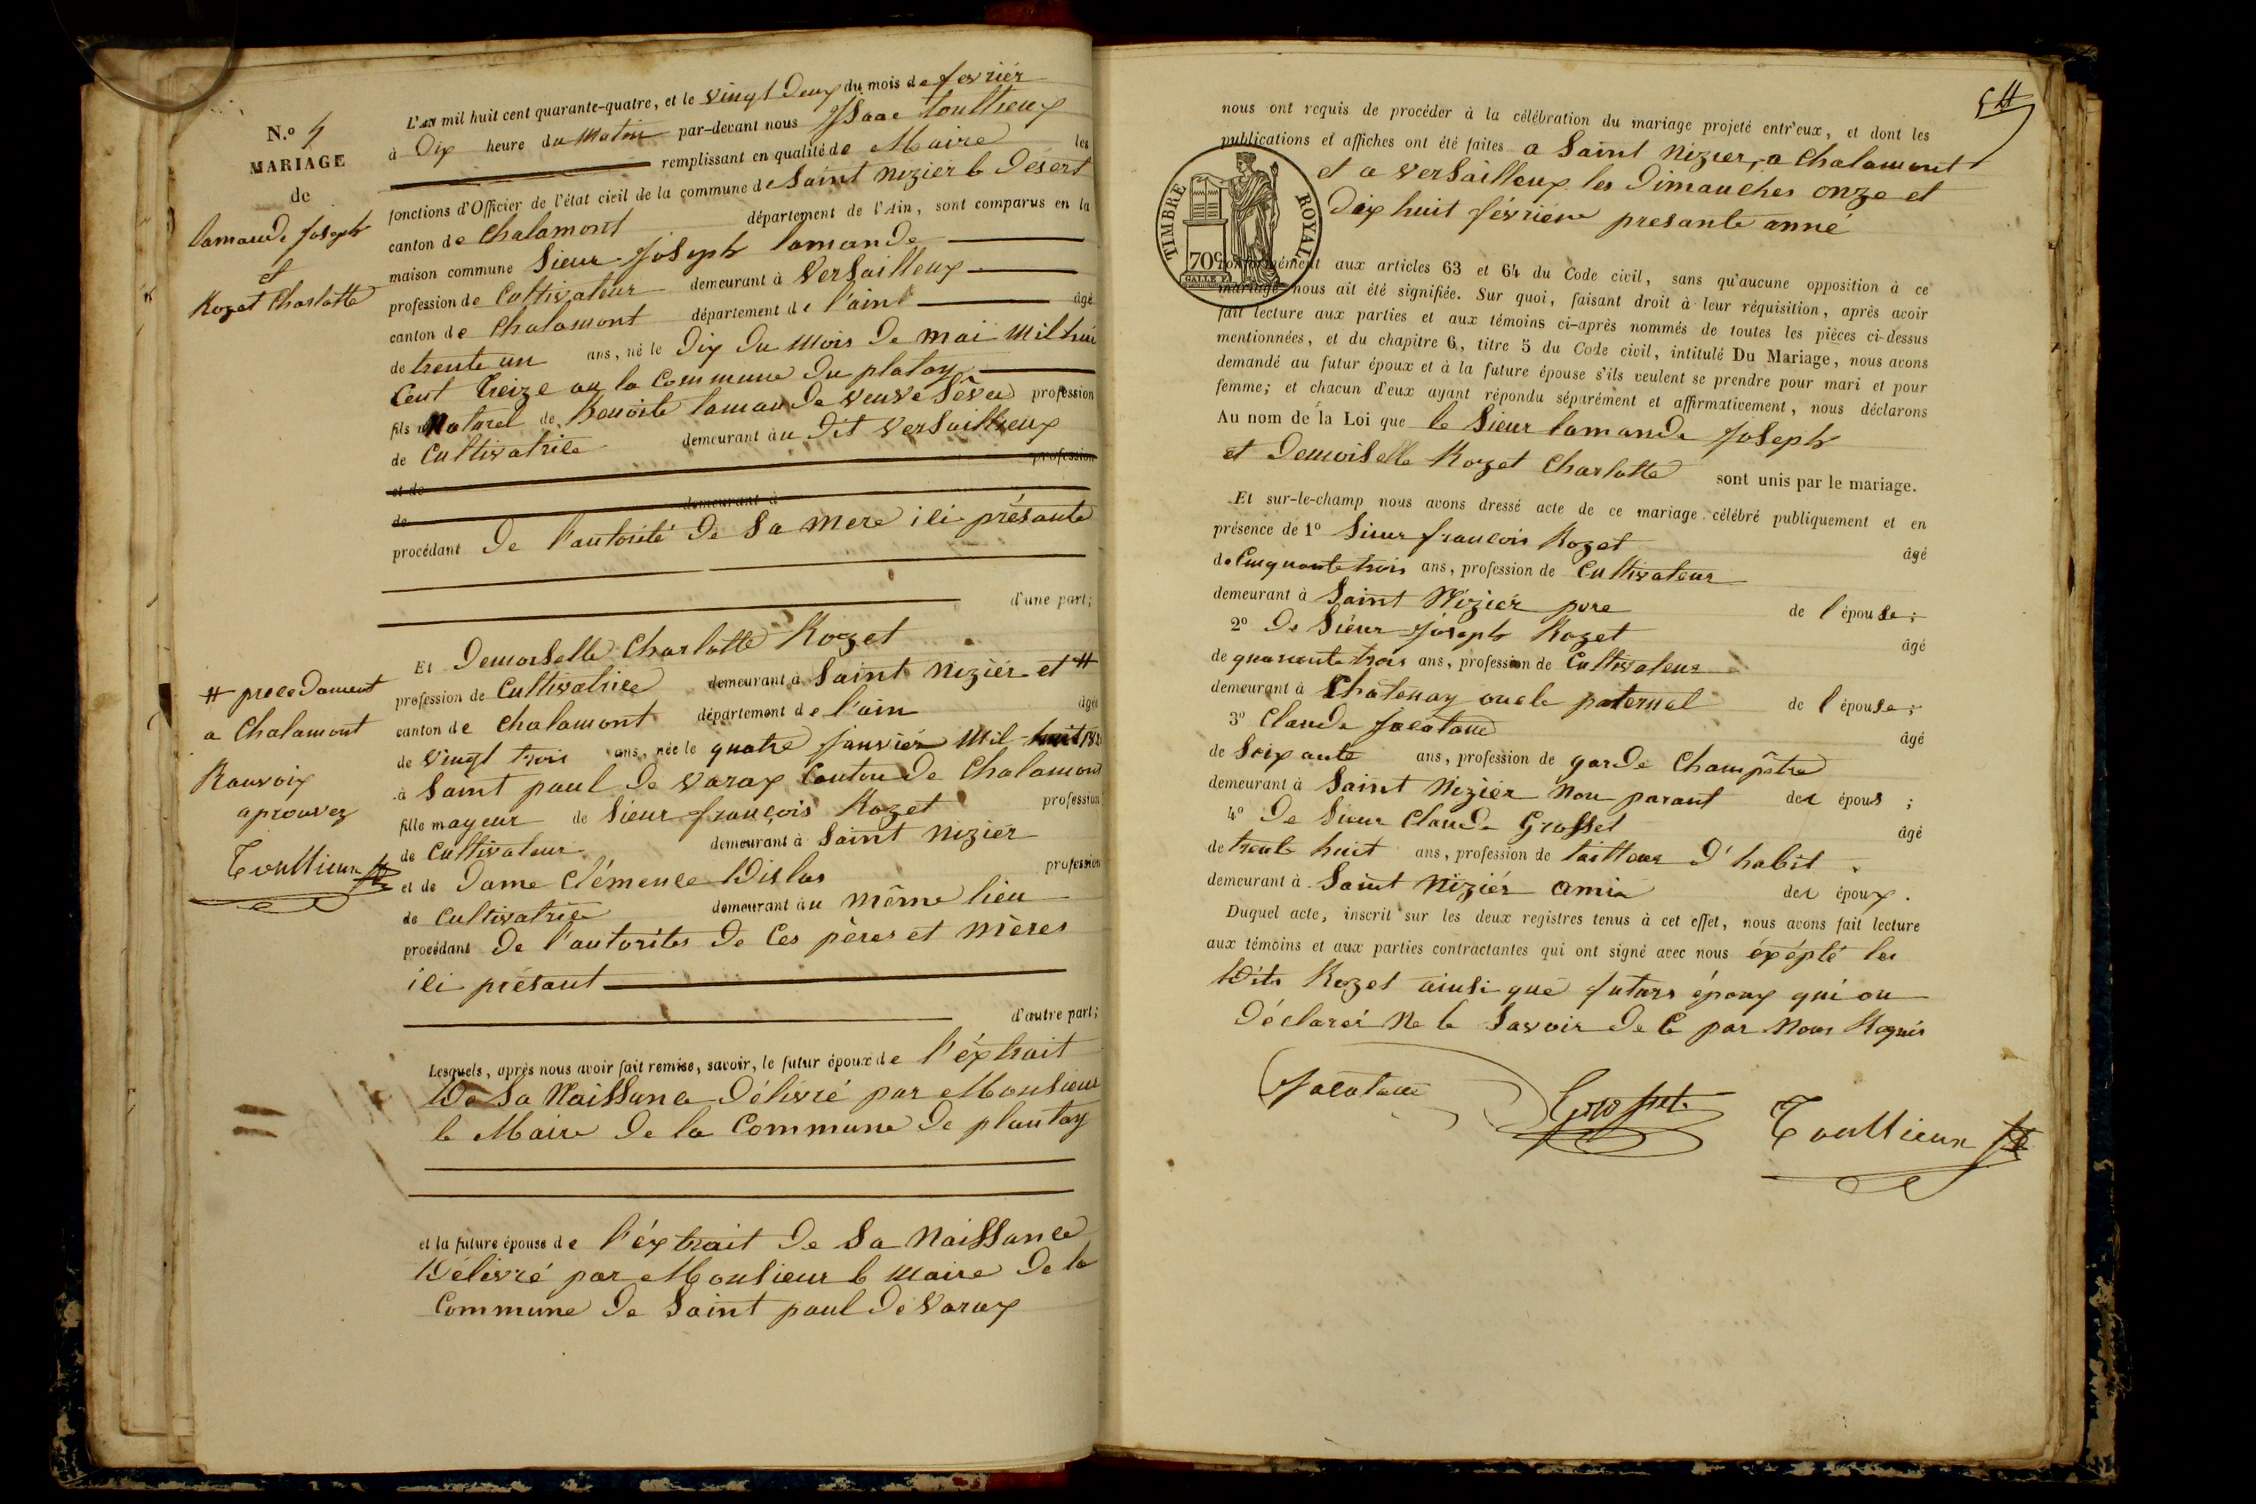 N.o 4
MARIAGE
de
lamande Joseph
et
Rozet Charlotte
L'an mil huit cent quarante-quatre, et le vingt deux du mois de fevrier
à Dix heure du Matin par-devant nous Isaac toullieux
remplissant en qualité de Maire les
fonctions d'Officier de l'état civil de la commune de Saint nizier le Désert
canton de Chalamont département de l'Ain, sont comparus en la
maison commune Sieur Joseph lamande
profession de Cultivateur demeurant à Versailleux
canton de Chalamont département de l'aint âgé
de trente un ans, né le Dix Du Mois De mai Mil huit
Cent treize au la Commune Du platay
fils naturel de Benoite lamande veuve Sève profession
de Cultivatrice demeurant au Dit Versailleux
et de profession
de demeurant à
procédant De l'autorité De Sa mere ici présante
d'une part;
Et Demoiselle Charlotte Rozet
profession de Cultivatrice demeurant à Saint nizier et #
canton de Chalamont département de l'ain âgée
de vingt trois ans, née le quatre Janvier Mil huit
à Saint paul de varax Canton De Chalamont
fille mayeur de Sieur françois Rozet profession
de Cultivateur demeurant à Saint nizier
et de Dame Clémence Dislas profession
de Cultivatrice demeurant au même lieu
procédant De l'autorités De Ces pères et mères
ici présant
d'autre part;
# precedament
a Chalamont
Ranvoix
aprouvez
Toullieux
Lesquels, après nous avoir fait remise, savoir, le futur époux de l'éxtrait
De Sa Naissance Délivré par Monsieur
le Maire De la Commune De plantay
et la future épouse de l'éxtrait De Sa Naissance
Délivré par Monsieur le Maire De la
Commune De Saint paul De Varax
nous ont requis de procéder à la célébration du mariage projeté entr'eux, et dont les
publications et affiches ont été faites a Saint Nizier, a Chalamont
et a Versailleux les Dimanches onze et
Dix huit févriére presante anné
TIMBRE ROYAL
70c
conformément aux articles 63 et 64 du Code civil, sans qu'aucune opposition à ce
mariage nous ait été signifiée. Sur quoi, faisant droit à leur réquisition, après avoir
fait lecture aux parties et aux témoins ci-après nommés de toutes les pièces ci-dessus
mentionnées, et du chapitre 6, titre 5 du Code civil, intitulé Du Mariage, nous avons
demandé au futur époux et à la future épouse s'ils veulent se prendre pour mari et pour
femme; et chacun d'eux ayant répondu séparément et affirmativement, nous déclarons
Au nom de la Loi que le Sieur lamande Joseph
et Demoiselle Rozet Charlotte sont unis par le mariage.
Et sur-le-champ nous avons dressé acte de ce mariage célébré publiquement et en
présence de 1o Sieur françois Rozet âgé
de Cinquante trois ans, profession de Cultivateur
demeurant à Saint Nizier pere de l'épouse;
2o De Sieur Joseph Rozet âgé
de quarante trois ans, profession de Cultivateur
demeurant à Chatenay oncle paternel de l'épouse;
3o Claude Jacatane âgé
de Soixante ans, profession de garde Champêtre
demeurant à Saint Nizier Non parant des épous;
4o De Sieur Claude Grosset âgé
de trente huit ans, profession de tailleur D'habit.
demeurant à Saint Nizier amie des époux.
Duquel acte, inscrit sur les deux registres tenus à cet effet, nous avons fait lecture
aux témoins et aux parties contractantes qui ont signé avec nous éxépté les
Dits Rozet ainsi que futurs époux qui on
Déclarés Ne le Savoir De Ce par Nous Requis
Jacatane Grosset Toullieux